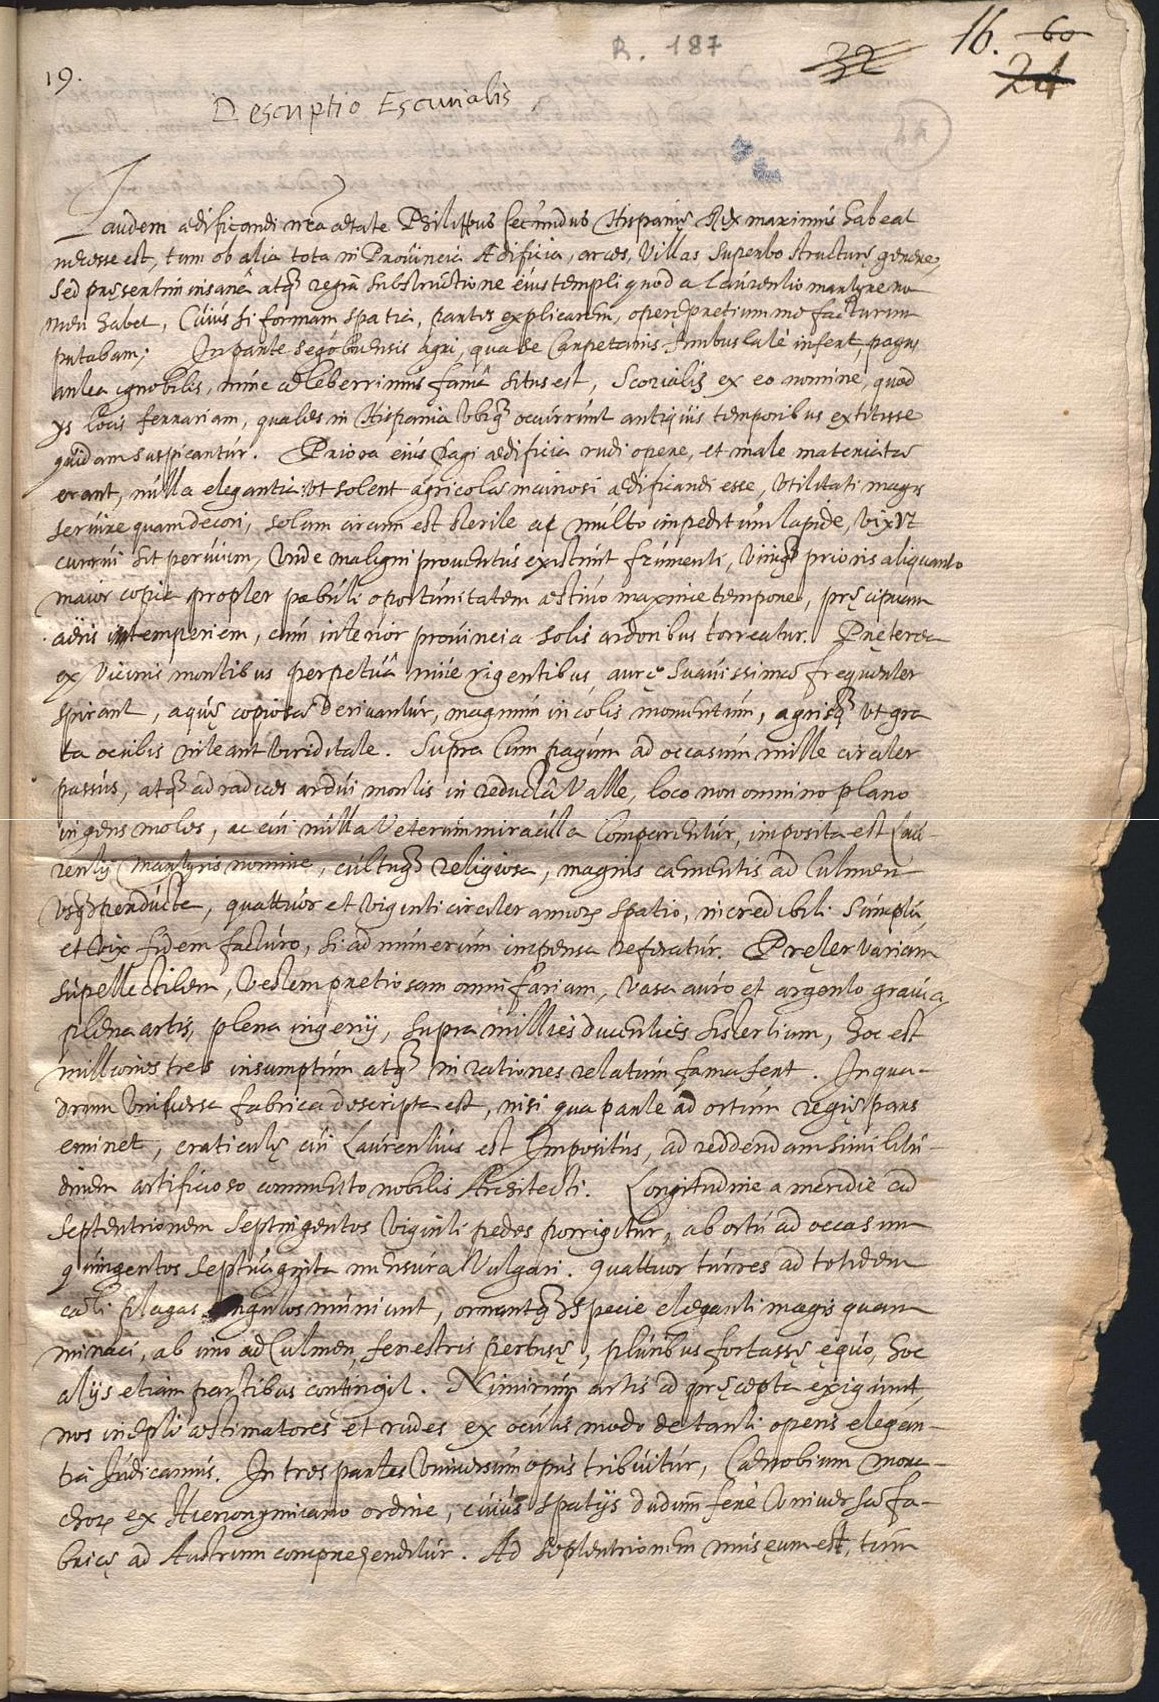 R. 187
16. 60
32
24
19.
Descriptio Escurialis
44
Laudem ædificandi nr̃a ætate Philippus secundus Hispanię Rex maximus habeat
necesse est, tum ob alia tota in Provincia Ædificia, arces, Villas superbo structurę genere,
sed pręsertim insanâ atq̃ regiâ substructione eius templi quod a Laurentio martyre no
men habet, Cuius si formam spatia, partes explicarem, operępretium me facturum
putabam; In parte segobiensis agri, qua se Carpetanis finibus latè infert, pagus
antea ignobilis, nunc celeberrimus famâ situs est, Scorialis ex eo nomine, quod
ys locis ferrariam, quales in Hispania ubiq̃ occurrunt antiquis temporibus extitisse
quidam suspicantur. Priora eius Pagi ædificia rudi opere, et male materiata
erant, nulla elegantia: Vt solent agricolæ mainosi ædificandi esse, Vtilitati magis
servire quam decori, solum circum est sterile ac multo impeditum lapide, vix Vt
currui sit pervium, Vnde maligni proventus existunt frumenti, Viniq̃ prioris aliquanto
maior copia propter pabuli oportunitatem æstivo maxime tempore, pręcipuam
aëris intemperiem, cum interior provincia solis ardoribus torreatur. Pręterea
ex Vicinis montibus perpetuâ nive rigentibus, aurę suavissimæ frequenter
spirant, aquę copiosæ derivantur, magnum incolis momentum, agrisq̃ Vt gra
ta oculis niteant viriditate. Supra Cum pagum ad occasum mille circiter
passus, atq̃ ad radices ardui montis in reductâ Valle, loco non omnino plano
ingens moles, ac cui nulla Veterum miracula Comparentur, imposita est Lau-
rentij Martyris nomine, cultuq̃ religiosa, magnis cæmentis ad Culmen
Vsq̃ perducta, quattuor et Viginti circiter annorꝫ spatio, incredibili Sumptu,
et Vix fidem facturo, si ad numerum impensa referatur. Pręter variam
supellectilem, Vestem pretiosam omnifariam, Vasa auro et argento gravia,
plena artis, plena ingenij, supra millies ducenties sestertium, hoc est
milliones tres insumptum atq̃ in rationes relatum fama fert. In qua-
drum Vniversa fabrica descripta est, nisi qua parte ad ortum regię pars
eminet, craticulę cui Laurentius est Impositus, ad reddendam similitu-
dinem artificioso commento nobilis Architecti. Longitudine a meridie ad
septentrionem septingentos Viginti pedes porrigitur, ab ortu ad occasum
quingentos septuaginta mensura Vulgari. Quattuor turres ad totidem
cæli plagas angulos muniunt, ornantq̃ specie eleganti magis quam
minaci, ab imo ad Culmen fenestris pertusę, pluribus fortassę ęquo, hoc
alijs etiam partibus contingit. Nimirum artis id pręcepta exigunt,
nos inepti æstimatores et rudes ex oculis modo de tanti operis elegan-
tia Iudicamus. In tres partes Vniversum opus tribuitur, Cænobium mona-
chorꝫ ex Hieronymiano ordine, cuius spatijs dudum fere Vniversæ fa-
bricę ad Austrum comprehenditur. Ad septentrionem musęum est, tum